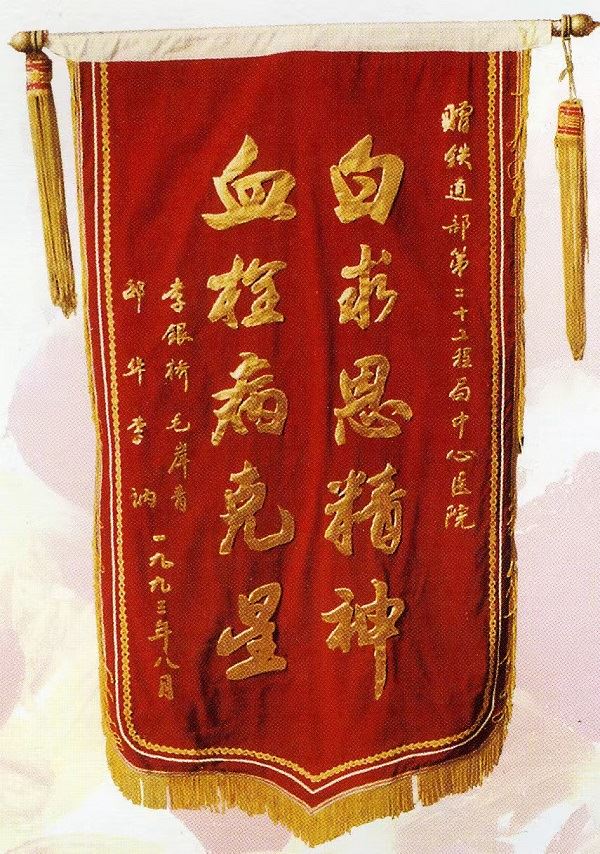 赠铁道部第二十工程局中心医院
白求恩精神
血栓病克星
李银桥 毛岸青
邵华 李讷
一九九三年八月